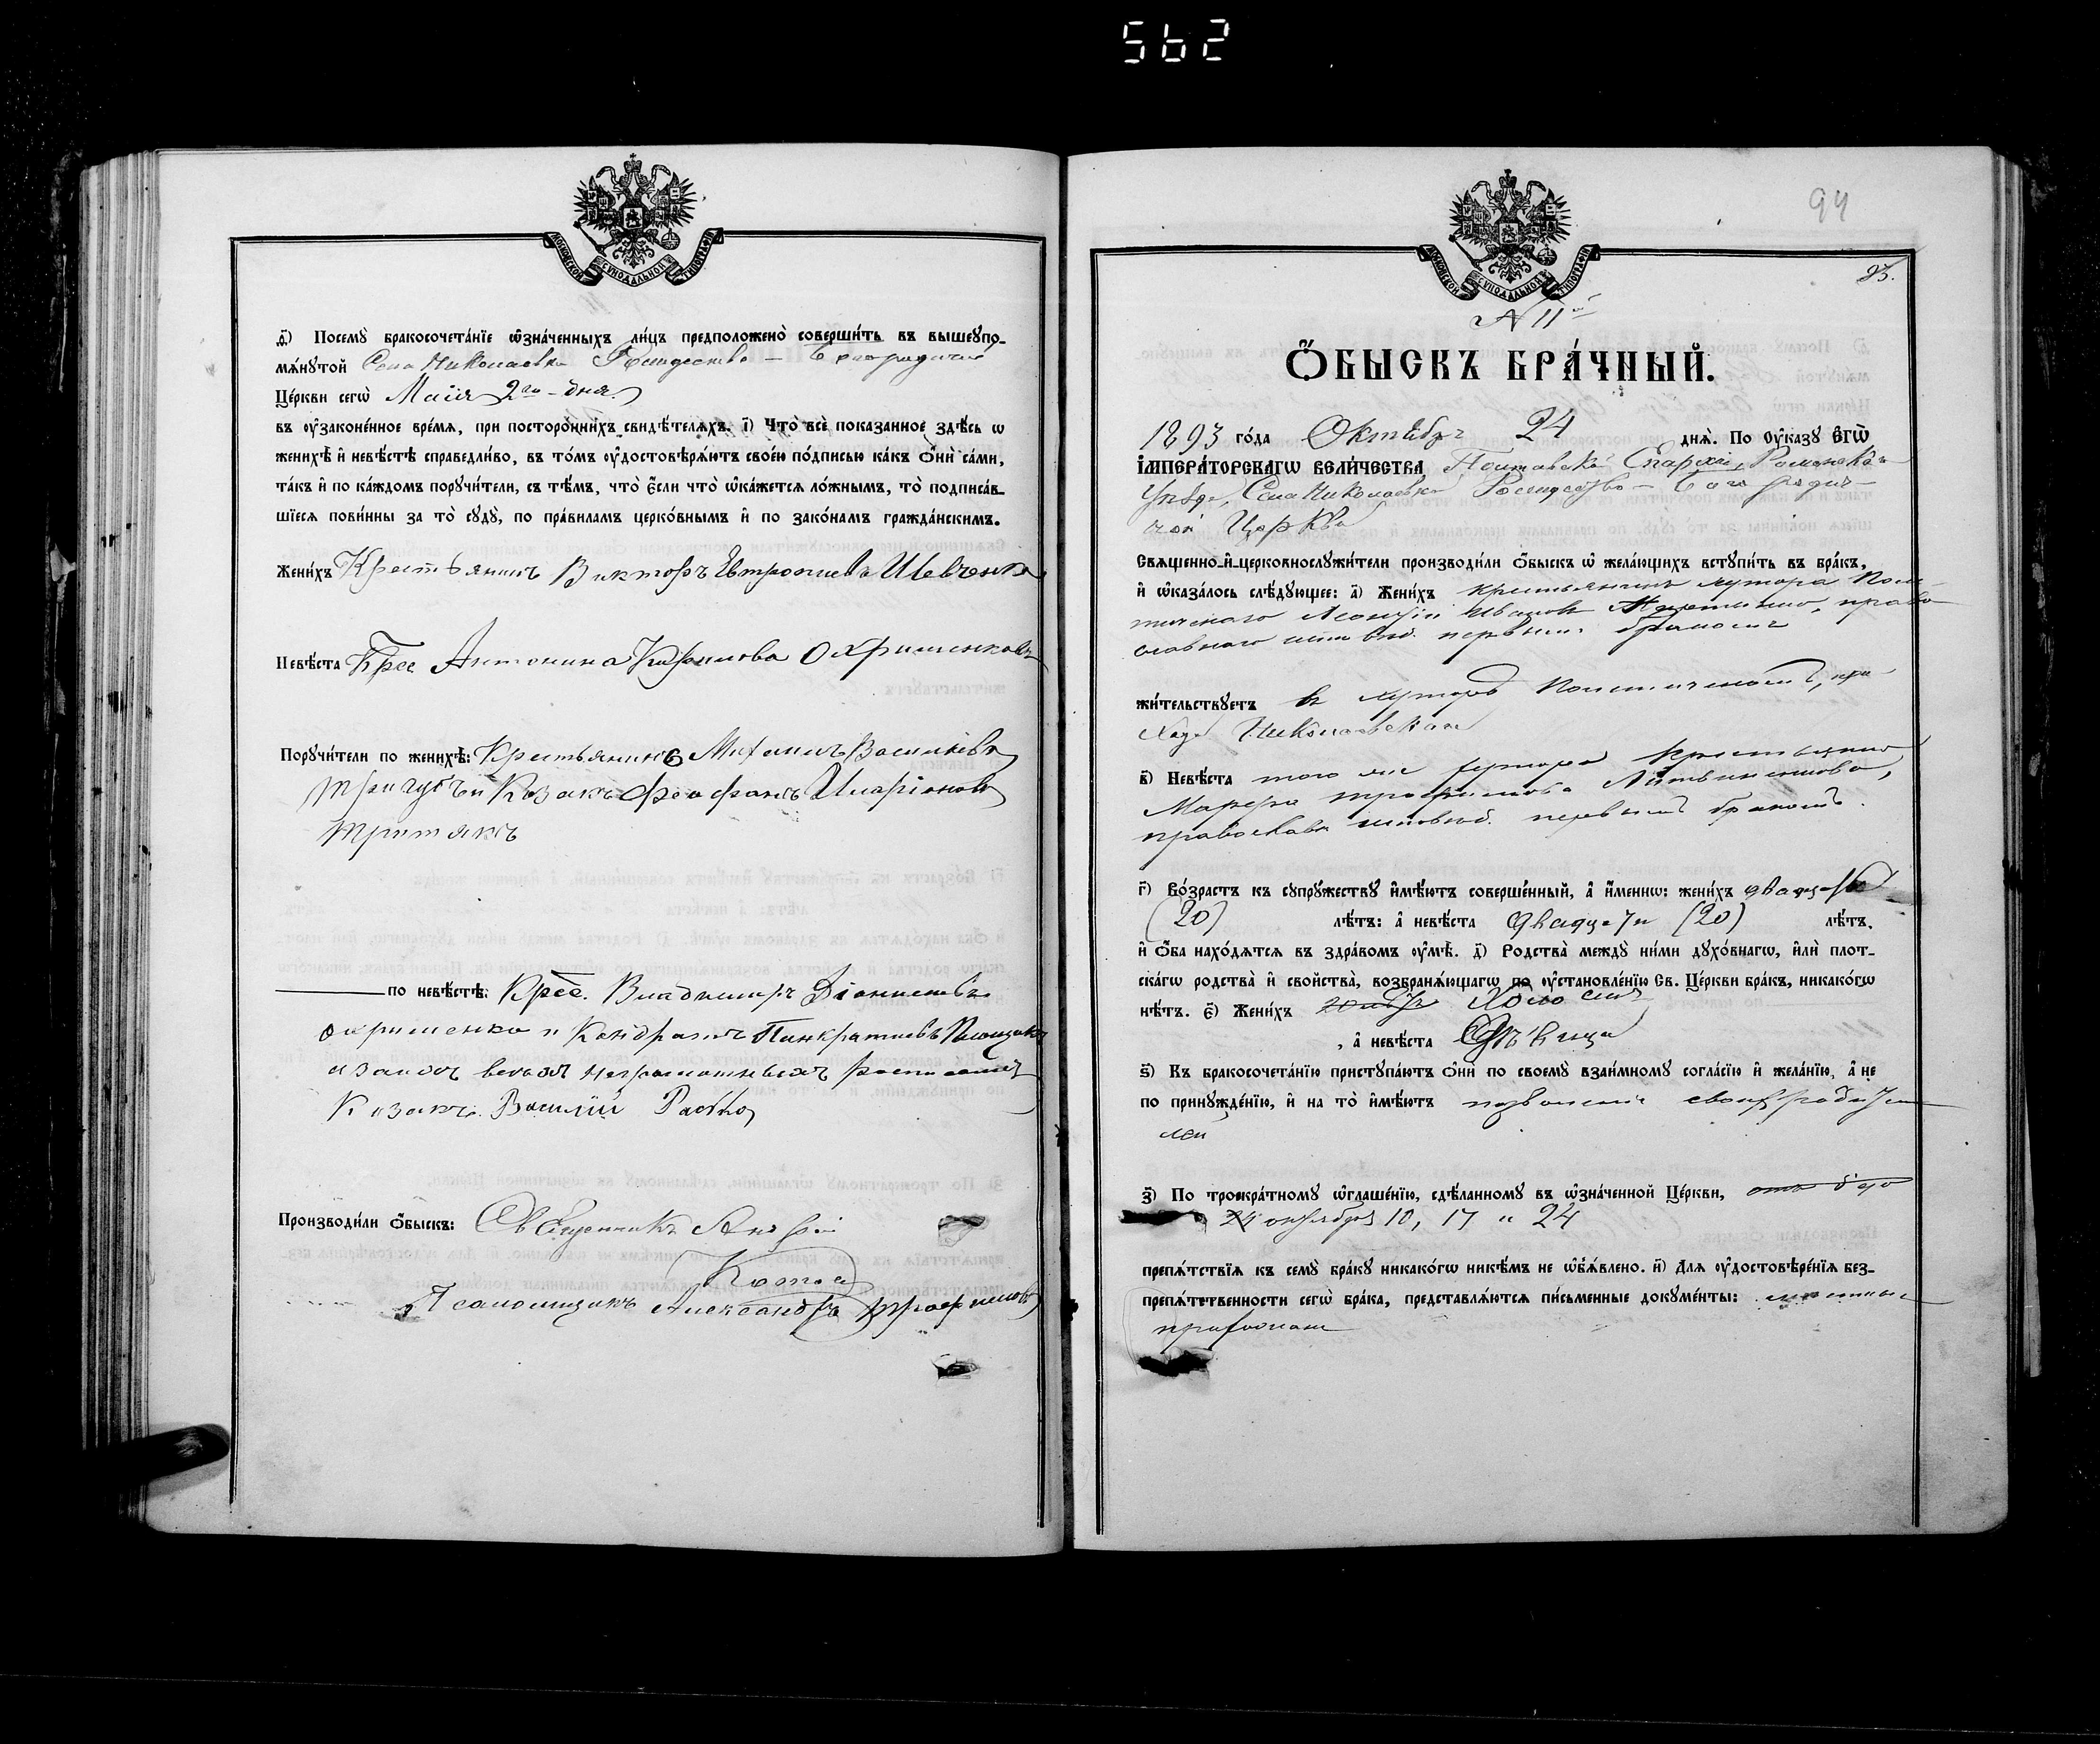 562
МОСКОВСКОЙ СѴНОДАЛЬНОЙ ТИПОГРАФІИ
д҃і) Посемꙋ̀ бракосочета́нїе ѡ҆зна́ченныхъ ли́цъ предположено̀ соверши́ть въ вышеꙋпо-
мѧ́нꙋтой Села Николаевки Рождество - Богородичной
Це́ркви сегѡ̀ Маія 2го - дня
въ ᲂу҆зако́ненное вре́мѧ, при посторо́ннихъ свидѣ́телѧхъ. і҃) Что̀ всѐ показанное здѣ́сь ѡ
женихѣ̀ и҆ невѣ́стѣ справедли́во, въ то́мъ ᲂу҆достовѣрѧ́ютъ свое́ю по́дписью ка́къ ѻ҆нѝ са́ми,
та́къ и҆ по ка́ждомъ порꙋчи́тели, съ тѣ́мъ, что̀ є҆́сли что̀ ѡ҆ка́жетсѧ ло́жнымъ, то̀ подписа́в-
шїесѧ пови́нны за то̀ сꙋдꙋ̀, по пра́виламъ церко́внымъ и҆ по зако́намъ гражда́нскимъ.
Жени́хъ Крестьянинъ Викторъ Евтропіевъ Шевченко
Невѣ́ста Крес Антонина Кирилова Охрименкова
Порꙋчи́тели по женихѣ̀: Крестьянинъ Михаилъ Васильевъ
Тригубъ и Козакъ Феофанъ Иларіоновъ
Третякъ
по невѣ́стѣ: Крес. Владимиръ Діонисіевъ
Охрименко и Кондратъ Панкратіевъ
а за ихъ всѣхъ неграмотныхъ росписался
Козакъ Василій
Производи́ли ѻ҆́быскъ: Священникъ Андрей
Псаломщикъ Александръ Трофимовъ
94
МОСКОВСКОЙ СѴНОДАЛЬНОЙ ТИПОГРАФІИ
N 11й
Ѻ҆́БЫСКЪ БРА́ЧНЫЙ.
1893 го́да Октября 24 днѧ̀. По ᲂу҆ка́зꙋ Е҆гѡ̀
І҆мпера́торскагѡ Вели́чества Полтавской Епархіи, Роменскаго
Уѣзда, Села Николаевки Рождество - Богородич-
ной Церкви
Свѧще́нно-и҆-церковнослꙋжи́тели производи́ли ѻ҆́быскъ ѡ҆ жела́ющихъ встꙋпи́ть въ бра́къ,
и҆ ѡ҆каза́лось слѣ́дꙋющее: а҃) Жени́хъ крестьянинъ хутора
Ивановъ право
славнаго первымъ бракомъ
жи́тельствꙋетъ въ хуторѣ при-
хода Николаевскаго
в҃) Невѣ́ста того же хутора крестьянка
Марфа Трофимова Литвиненкова,
православн исповѣд. первымъ бракомъ.
г҃) Во́зрастъ къ сꙋпрꙋ́жествꙋ и҆мѣ́ютъ соверше́нный, а҆ и҆́меннѡ: жени́хъ двадцать
(20) лѣ́тъ: а҆ невѣ́ста двадцати (20) лѣ́тъ.
и҆ ѻ҆́ба нахо́дѧтсѧ въ здра́вомъ ᲂу҆мѣ̀. д҃) Родства̀ междꙋ̀ ни́ми дꙋхо́внагѡ, и҆лѝ плот-
ска́гѡ родства̀ и҆ сво́йства̀, возбранѧ́ющагѡ по ᲂу҆становле́нїю Св. Це́ркви бра́къ, никако́гѡ
нѣ́тъ. є҃) Жени́хъ Холостъ
, а҆ невѣ́ста Дѣвица
ѕ҃) Къ бракосочета́нїю пристꙋпа́ютъ ѻ҆нѝ по своемꙋ̀ взаи́мномꙋ согла́сїю и҆ жела́нїю, а҆ не
по принꙋжде́нїю, и҆ на то̀ и҆мѣ́ютъ позволеніе своихъ родите
лей
з҃) По троекра́тномꙋ ѡ҆глаше́нїю, сдѣ́ланномꙋ въ ѡ҆зна́ченной Це́ркви,
24 октября 10, 17 и 24
препѧ́тствїѧ къ семꙋ̀ бра́кꙋ никако́гѡ никѣ́мъ не ѡ҆б̾ѧ́влено. и҃) Длѧ ᲂу҆достовѣре́нїѧ без-
препѧ́тственности сегѡ̀ бра́ка, представлѧ́ютсѧ пи́сьменные докꙋме́нты: местные
прихожане